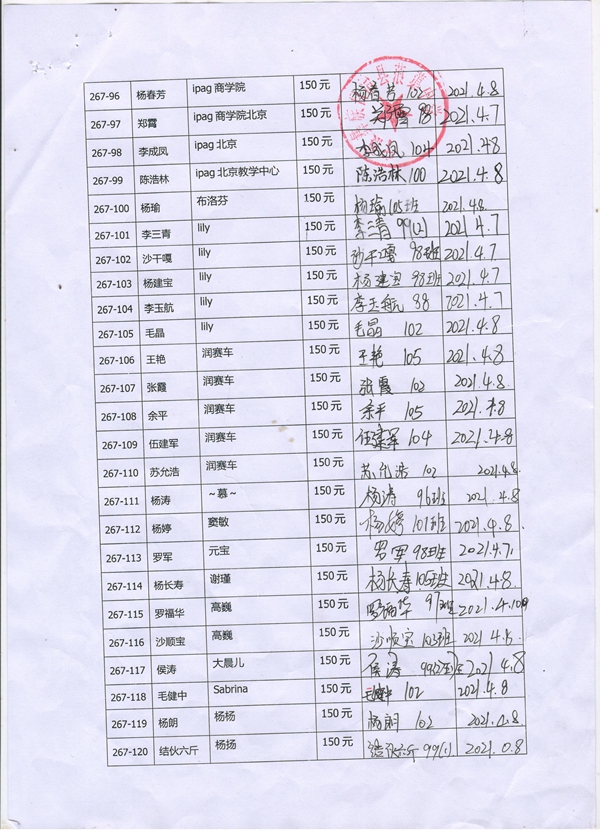 267-96 杨春芳 ipag商学院 150元 杨春芳 102 2021.4.8
267-97 郑霄 ipag商学院北京 150元 98 2021.4.7
267-98 李成凤 ipag北京 150元 李成凤 104 2021.4.8
267-99 陈浩林 ipag北京教学中心 150元 陈浩林 100 2021.4.8
267-100 杨瑜 布洛芬 150元 杨瑜 105班 2021.4.8.
267-101 李三青 lily 150元 李三青 99(2) 2021.4.7
267-102 沙干嘎 lily 150元 沙干嘎 98班 2021.4.7
267-103 杨建宝 lily 150元 杨建宝 98班 2021.4.7
267-104 李玉航 lily 150元 李玉航 98 2021.4.7
267-105 毛晶 lily 150元 毛晶 102 2021.4.8
267-106 王艳 润赛车 150元 王艳 105 2021.4.8
267-107 张霞 润赛车 150元 张霞 102 2021.4.8.
267-108 余平 润赛车 150元 余平 105 2021.4.8
267-109 伍建军 润赛车 150元 伍建军 104 2021.4.8
267-110 苏允浩 润赛车 150元 苏允浩 102 2021.4.8.
267-111 杨涛 ~慕~ 150元 杨涛 96班 2021.4.8
267-112 杨婷 窦敏 150元 杨婷 101班 2021.4.8.
267-113 罗军 元宝 150元 罗军 98班 2021.4.7.
267-114 杨长寿 谢瑾 150元 杨长寿 105班 2021.4.8
267-115 罗福华 高巍 150元 罗福华 97班
267-116 沙顺宝 高巍 150元 沙顺宝 103班 2021
267-117 侯涛 大晨儿 150元 侯涛 2021.4.8
267-118 毛健中 Sabrina 150元 毛健中 102 2021.4.8
267-119 杨朗 杨杨 150元 杨朗 102 2021
267-120 结伙六斤 杨扬 150元 结伙六斤 99(1) 2021